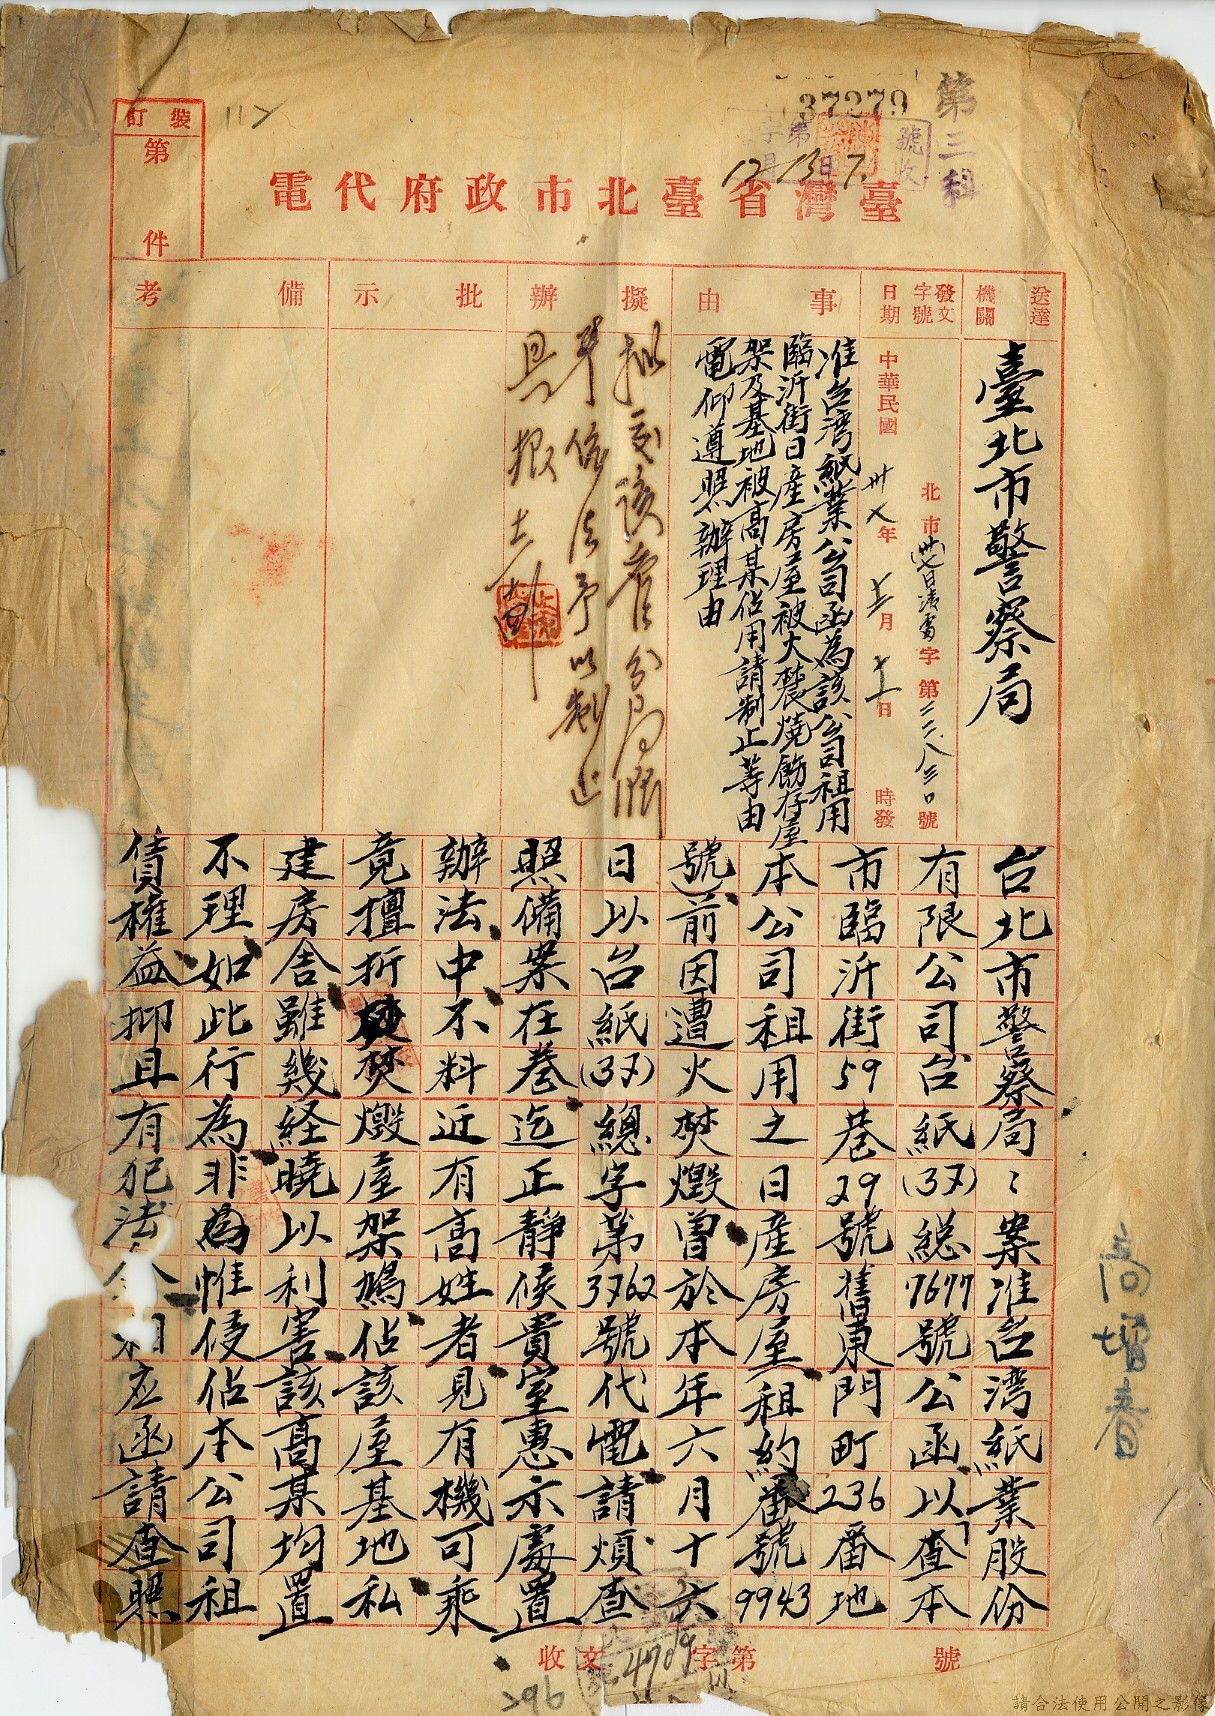 37279
第三組
12 13 7.
臺灣省臺北市政府代電
裝訂
第
件
送達機關
臺北市警察局
發文字號
北市(卅七)日清
字第二二八三〇號
日期
中華民國卅七年十二月十一日
時發
事由
准台湾紙業公司函為該公司租用
臨沂街日產房屋被火焚燒餘存屋
架及基地被高某佔用請制止等由
電仰遵照辦理由
擬辦
拟交該管分局
依法予以制止
具報
批示
備考
台北市警察局:案准台湾紙業股份
有限公司台紙(37)總7677號公函以「查本
市臨沂街59巷29號舊東門町236番地
本公司租用之日產房屋(租約番號9943
號)前因遭火焚燬曾於本年六月十六
日以台紙(37)總字第3762號代電請煩查
照備案在卷迄正靜候貴室惠示處置
辦法中不料近有高姓者見有機可乘
竟擅折焚燬屋架鳩佔該屋基地私
建房舍雖幾経曉以利害該高某均置
不理如此行為非惟侵佔本公司租
賃權益抑且有犯法令相应函請查照
高增春
收文字第號
4709
296
請合法使用公開之影像